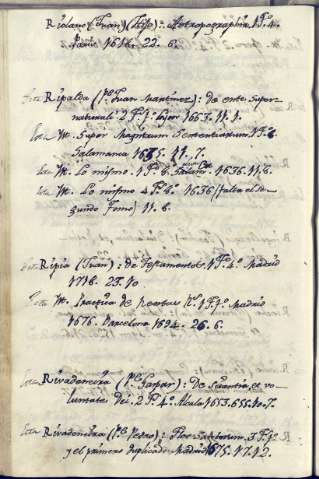 Riolano (Juan) (Hijo): Antropographia 1. t. 4.
Paris 1618. 22. 6.
Ripalda (P.e Juan Martinez): de ente Super-
naturali 2 t. f.
It. Super Magistrum Sententiarum 1 t. f.
Salamanca 1635. 11. 7.
It. Lo mismo 1 t. f. 1636. 11. 6.
It. Lo mismo 4. t. 6.º 1636 (falta el se-
gundo tomo) 11. 6.
Ripia (Juan): de Testamentos 1 t. 4.º Madrid
1718. 2 t. 10
It. Practica de 1 t. f.º Madrid
1676. Barcelona 1694. 26. 6.
Rivadeneira (P.e Gaspar): De scientia, et vo-
luntate Dei: 2 t. 4.º Alcala 1653. 655. 10. 7.
Rivadeneira (P.e Pedro): Flos Sanctorum. 3 t. f.º
y el primero duplicado Madrid 1675. 17. 12.